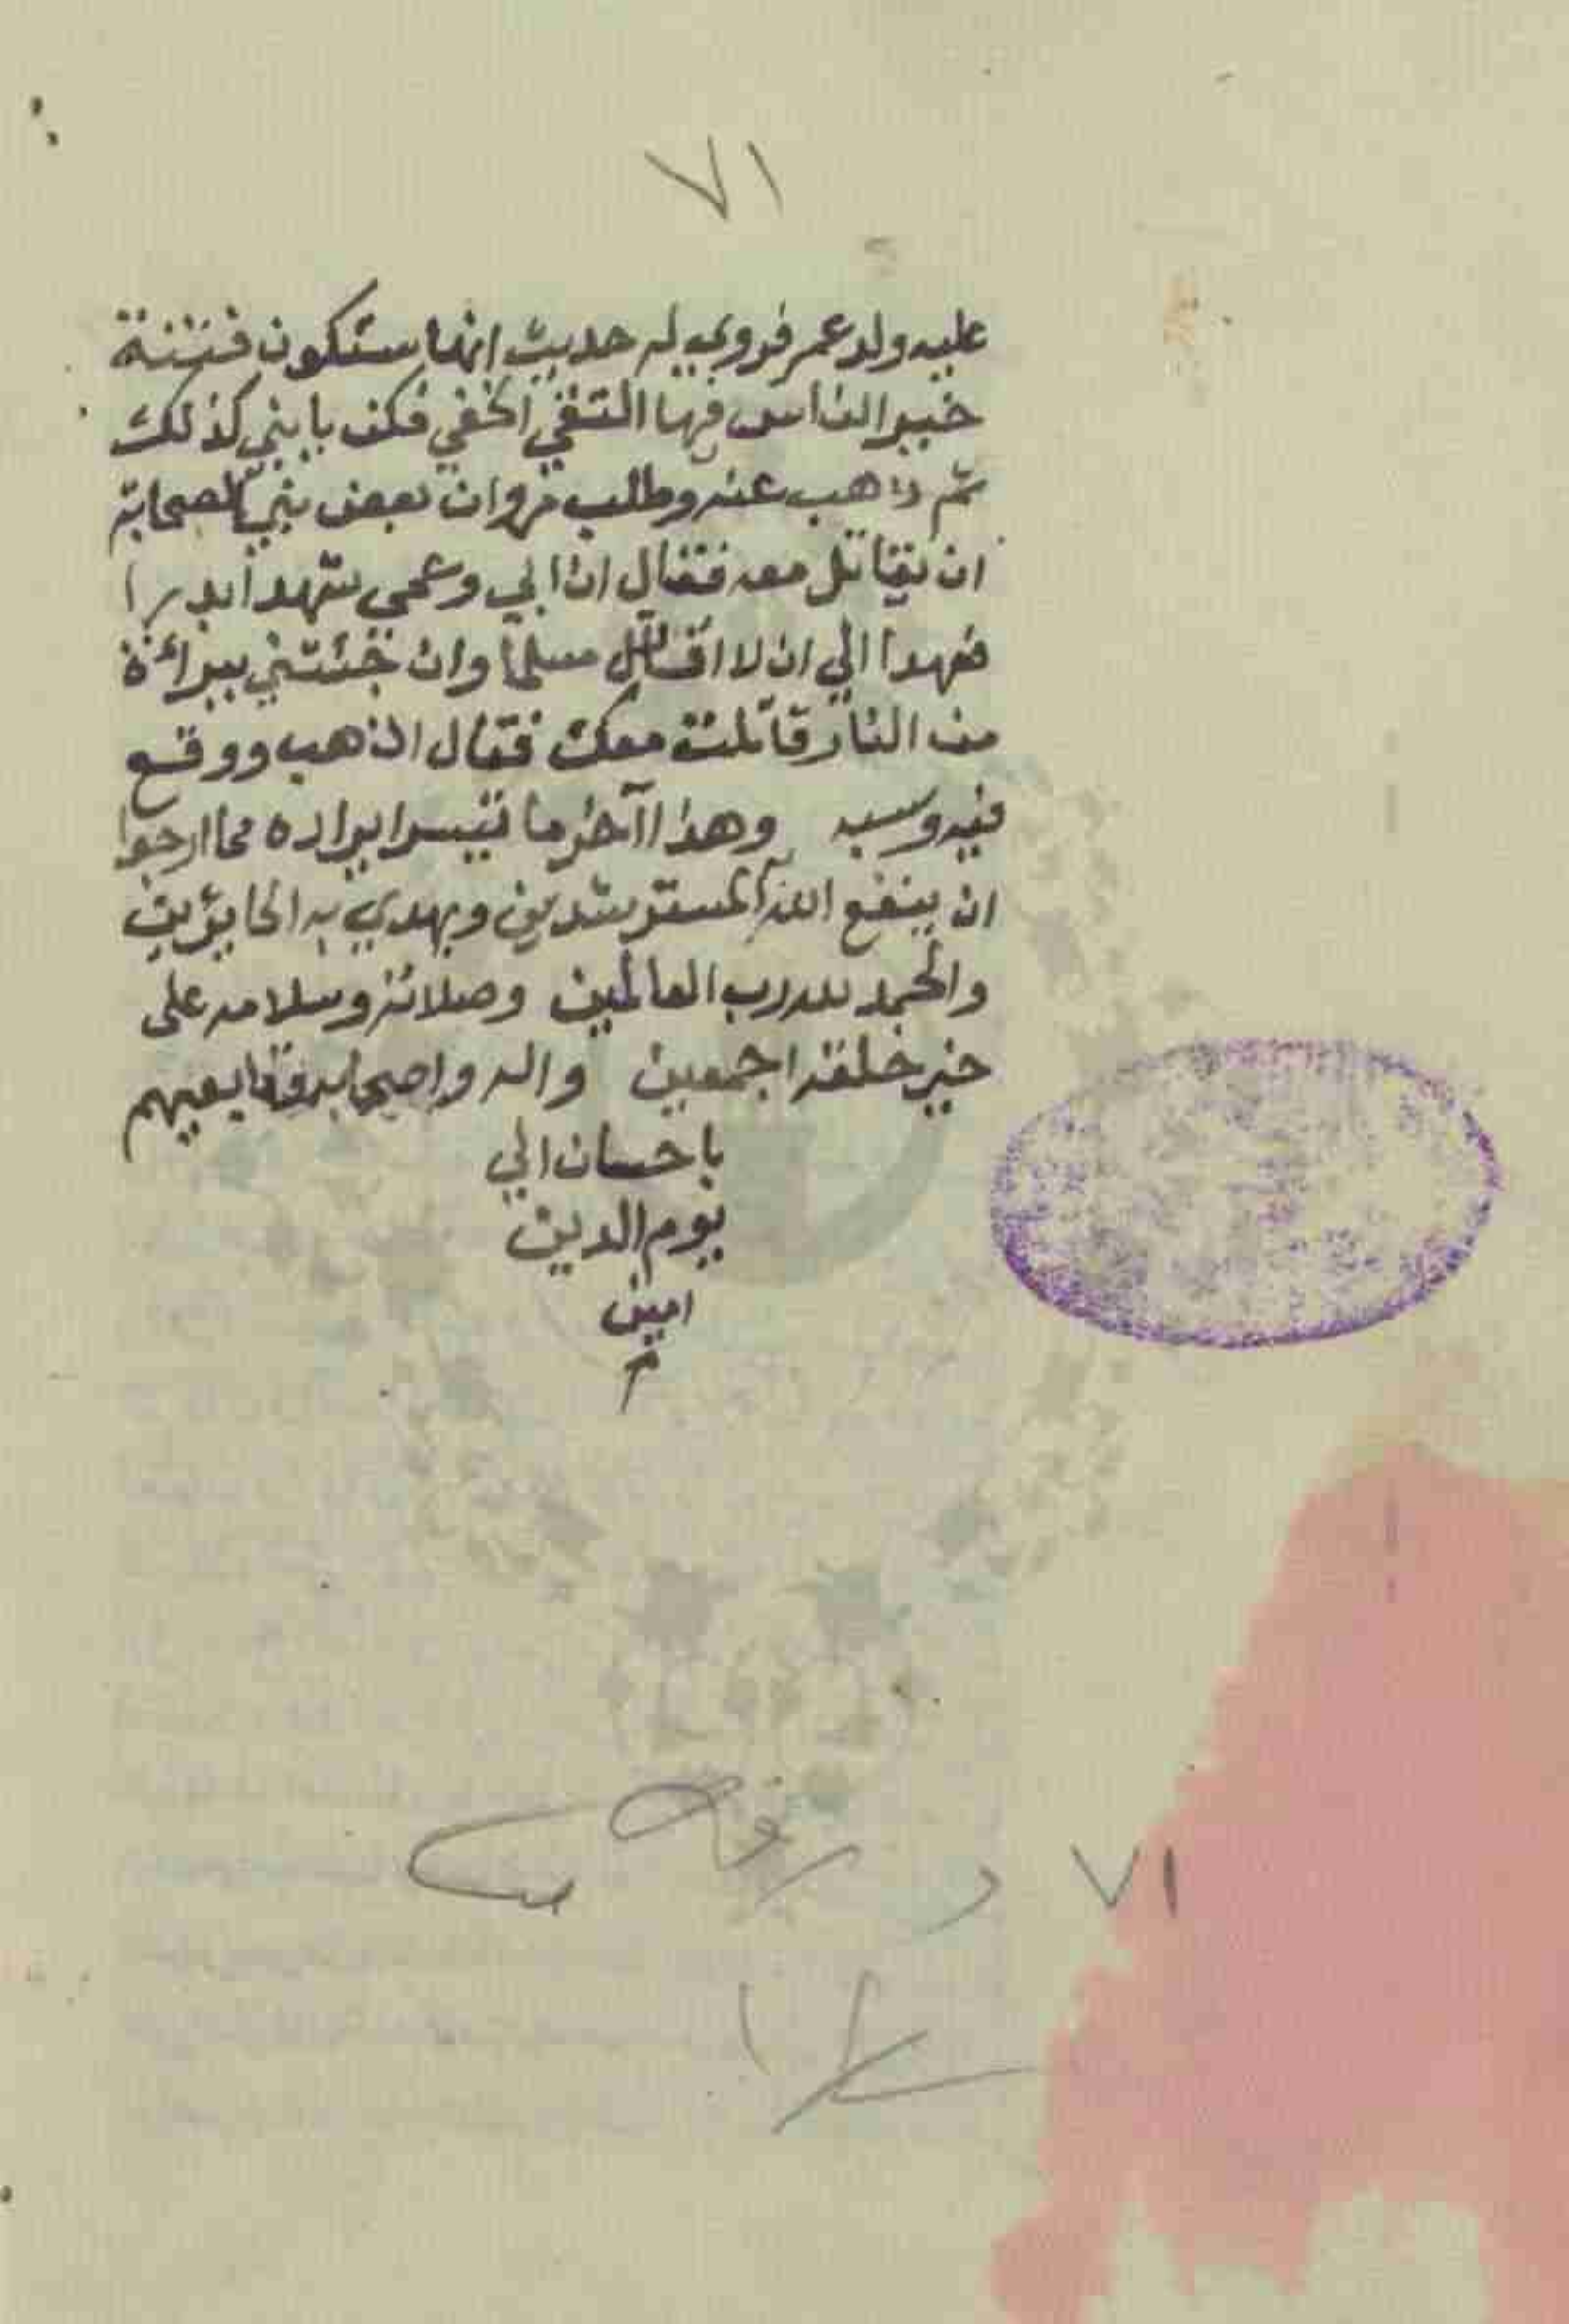 ٧١
عليه ولد عمر فروي له حديث انها ستكون فتنة
خير الناس فيها التقي الخفي فكن يا بني كذلك
ثم ذاهب عنه وطلب مروان بعض بني الصحابة
ان يقاتل معه فقال ان ابي وعمي شهدا بدرا
فعهدا الي ان لا اقاتل مسلما وان جئتني ببرائة
من النار قاتلت معك فقال اذهب ووقع
فيه وسبه وهذا آخر ما تيسر ايراده مما ارجوا
ان ينفع الله المسترشدين ويهدي به الحايرين
والحمد لله رب العالمين وصلاته وسلامه على
خير خلقه اجمعين واله واصحابه وتابعيهم
باحسان الي
يوم الدين
امين
م
٧١ ورقة